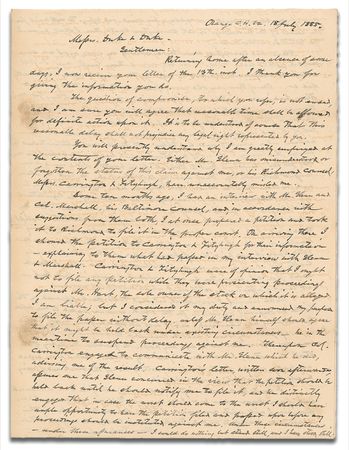 Orange C.H. Va. 18 July 1885.
Messrs. Duke & Duke
Gentlemen:
Returning home after an absence of some
days, I now receive your letter of the 13th inst. I thank you for
giving the information you do.
The question of compromise, to which you refer, is not aside,
and I am sure you will agree that reasonable time shall be afforded
for definite action upon it. It is to be understood of course that this
reasonable delay shall not prejudice any legal right represented by you.
You will presently understand why I am greatly surprised at
the contents of your letter. Either Mr. Glenn has misunderstood or
forgotten the status of this claim against me, or his Richmond Counsel,
Messrs. Carrington & Fitzhugh, have unaccountably misled me.
Some ten months ago, I had an interview with Mr. Glenn and
Col. Marshall, his Baltimore Counsel, and in accordance with
suggestions from them both I at once prepared a petition and took
it to Richmond to file it in the proper court. On arriving there I
showed the petition to Carrington & Fitzhugh for their information
— explaining to them what had passed in my interview with Glenn
& Marshall. Carrington & Fitzhugh were of opinion that I ought
not to file any petition while they were prosecuting proceedings
against Mr. the late owner of the stock on which it is alleged
I am liable, but I considered it my duty and announced my purpose
to file the paper without delay, unless Mr. Glenn himself should agree
that it might be held back under existing circumstances. he in the
meantime to suspend proceedings against me. Thereupon Col.
Carrington engaged to communicate with Mr. Glenn which he did,
advising me of the result. Carrington's letter, written soon afterwards,
assures me that Glenn concurred in the view that the petition should be
held back until he should notify me to file it, and he distinctly
engaged that in case the worst should come to the worst I should have
ample opportunity to have the petition filed and passed upon before any
proceedings should be instituted against me. Under these circumstances
— under these assurances — I could do nothing but stand still, and I have stood still